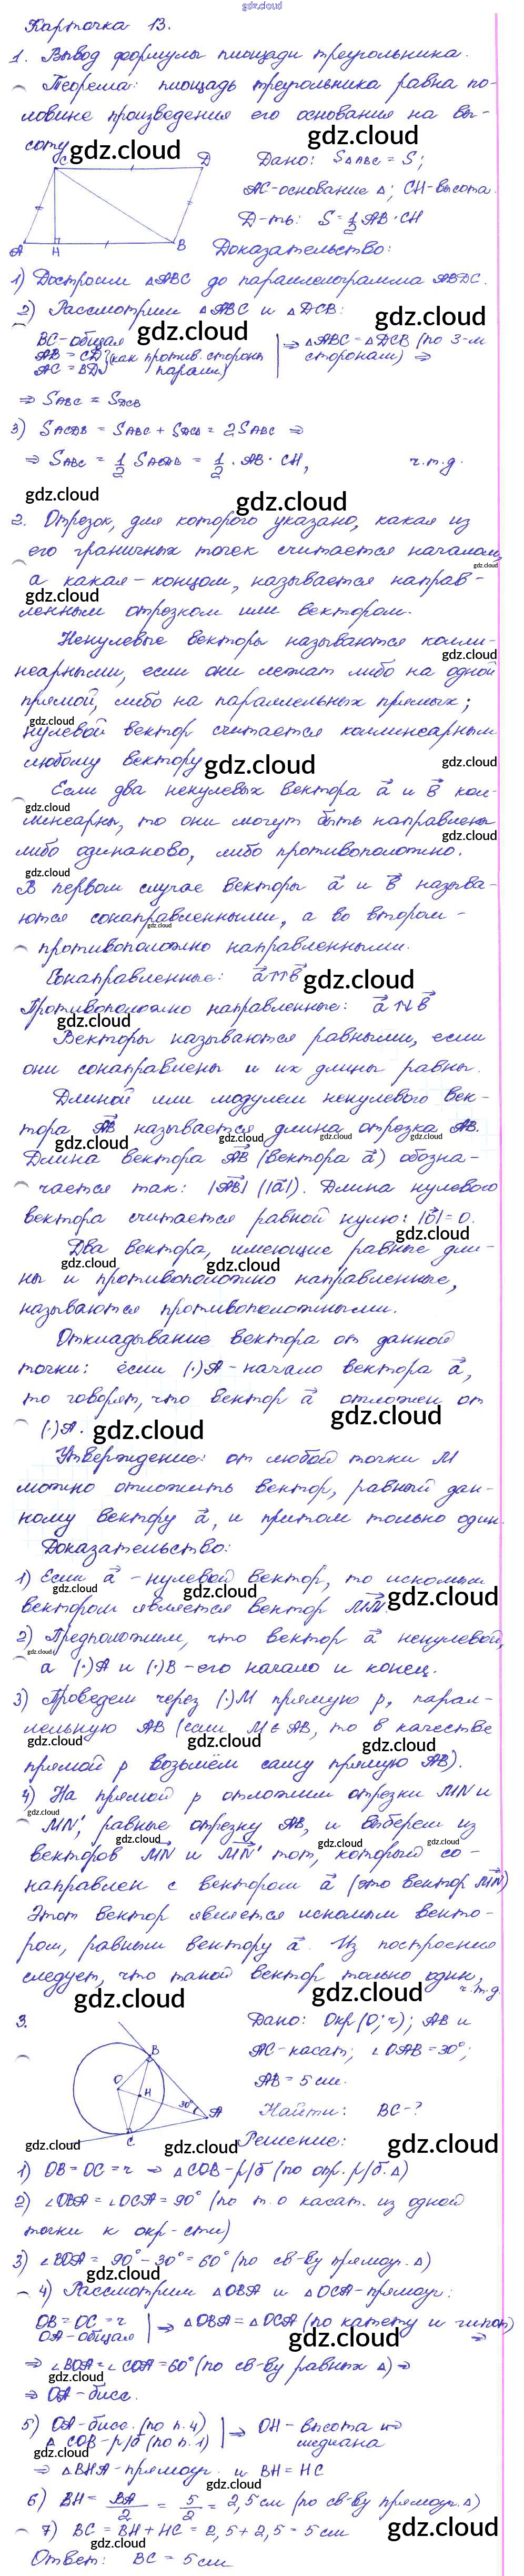 gdz.cloud
Карточка 13.
1. Вывод формулы площади треугольника.
Теорема: площадь треугольника равна по-
ловине произведения его основания на вы-
соту
gdz.cloud
gdz.cloud
C D
Дано: S△ABC = S;
AC-основание △; CH-высота.
Д-ть: S = 1/2 AB · CH
A H B
Доказательство:
1) Достроим △ABC до параллелограмма ABDC.
2) Рассмотрим △ABC и △DCB:
gdz.cloud
gdz.cloud
BC-общая
AB = CD (как против. стороны
AC = BD парал.)
⇒ △ABC = △DCB (по 3-м
сторонам) ⇒
⇒ SABC = SDCB
3) SACDB = SABC + SDCB = 2SABC ⇒
⇒ SABC = 1/2 SACDB = 1/2 · AB · CH, ч.т.д.
gdz.cloud
gdz.cloud
2. Отрезок, для которого указано, какая из
его граничных точек считается началом,
gdz.cloud
а какая - концом, называется направ-
gdz.cloud
ленным отрезком или вектором.
Ненулевые векторы называются колли-
gdz.cloud
неарными, если они лежат либо на одной
прямой, либо на параллельных прямых;
gdz.cloud
нулевой вектор считается коллинеарным
любому вектору
gdz.cloud
gdz.cloud
Если два ненулевых вектора a⃗ и b⃗ кол-
gdz.cloud
линеарны, то они могут быть направлены
gdz.cloud
либо одинаково, либо противоположно.
gdz.cloud
В первом случае векторы a⃗ и b⃗ называ-
ются сонаправленными, а во втором -
gdz.cloud
противоположно направленными.
Сонаправленные: a⃗↑↑b⃗
gdz.cloud
Противоположно направленные: a⃗↑↓b⃗
gdz.cloud
Векторы называются равными, если
они сонаправлены и их длины равны.
Длиной или модулем ненулевого век-
тора AB⃗ называется длина отрезка AB.
gdz.cloud
gdz.cloud
gdz.cloud
gdz.cloud
Длина вектора AB⃗ (вектора a⃗) обозна-
чается так: |AB⃗| (|a⃗|). Длина нулевого
вектора считается равной нулю: |0⃗| = 0.
gdz.cloud
Два вектора, имеющие равные дли-
gdz.cloud
gdz.cloud
ны и противоположно направленные,
называются противоположными.
Откладывание вектора от данной
точки: если (·)A - начало вектора a⃗,
то говорят, что вектор a⃗ отложен от
gdz.cloud
(·)A.
gdz.cloud
Утверждение: от любой точки M
можно отложить вектор, равный дан-
ному вектору a⃗, и притом только один.
Доказательство:
1) Если a⃗ - нулевой вектор, то искомым
gdz.cloud
gdz.cloud
gdz.cloud
вектором является вектор MM⃗.
2) Предположим, что вектор a⃗ ненулевой,
gdz.cloud
а (·)A и (·)B - его начало и конец.
3) Проведем через (·)M прямую p, парал-
лельную AB (если M∈AB, то в качестве
gdz.cloud
gdz.cloud
gdz.cloud
прямой p возьмём саму прямую AB).
4) На прямой p отложим отрезки MN и
gdz.cloud
MN', равные отрезку AB, и выберем из
gdz.cloud
gdz.cloud
gdz.cloud
векторов MN⃗ и MN'⃗ тот, который со-
направлен с вектором a⃗ (это вектор MN⃗)
Этот вектор является искомым векто-
ром, равным вектору a⃗. Из построения
следует, что такой вектор только один,
ч.т.д.
gdz.cloud
gdz.cloud
3.
Дано: Окр(O; r); AB и
AC-касат; ∠OAB = 30°;
AB = 5 см.
Найти: BC-?
B
O
H
30°
A
C
gdz.cloud
gdz.cloud
gdz.cloud
Решение:
1) OB = OC = r ⇒ △COB - р/б (по опр. р/б. △)
2) ∠OBA = ∠OCA = 90° (по т. о касат. из одной
точки к окр-сти)
3) ∠BOA = 90° - 30° = 60° (по св-ву прямоуг. △)
gdz.cloud
4) Рассмотрим △OBA и △OCA-прямоуг:
OB = OC = r
OA - общая
⇒ △OBA = △OCA (по катету и гипот)
gdz.cloud
⇒
⇒ ∠BOA = ∠COA = 60° (по св-ву равных △) ⇒
gdz.cloud
⇒ OA-бисс.
5) OA-бисс. (по п. 4)
△ COB-р/б (по п. 1)
⇒ OH-высота и
медиана
gdz.cloud
⇒ △BHA-прямоуг. и BH = HC
gdz.cloud
6) BH = BA/2 = 5/2 = 2,5 см (по св-ву прямоуг. △)
7) BC = BH + HC = 2,5 + 2,5 = 5 см
gdz.cloud
gdz.cloud
Ответ: BC = 5 см